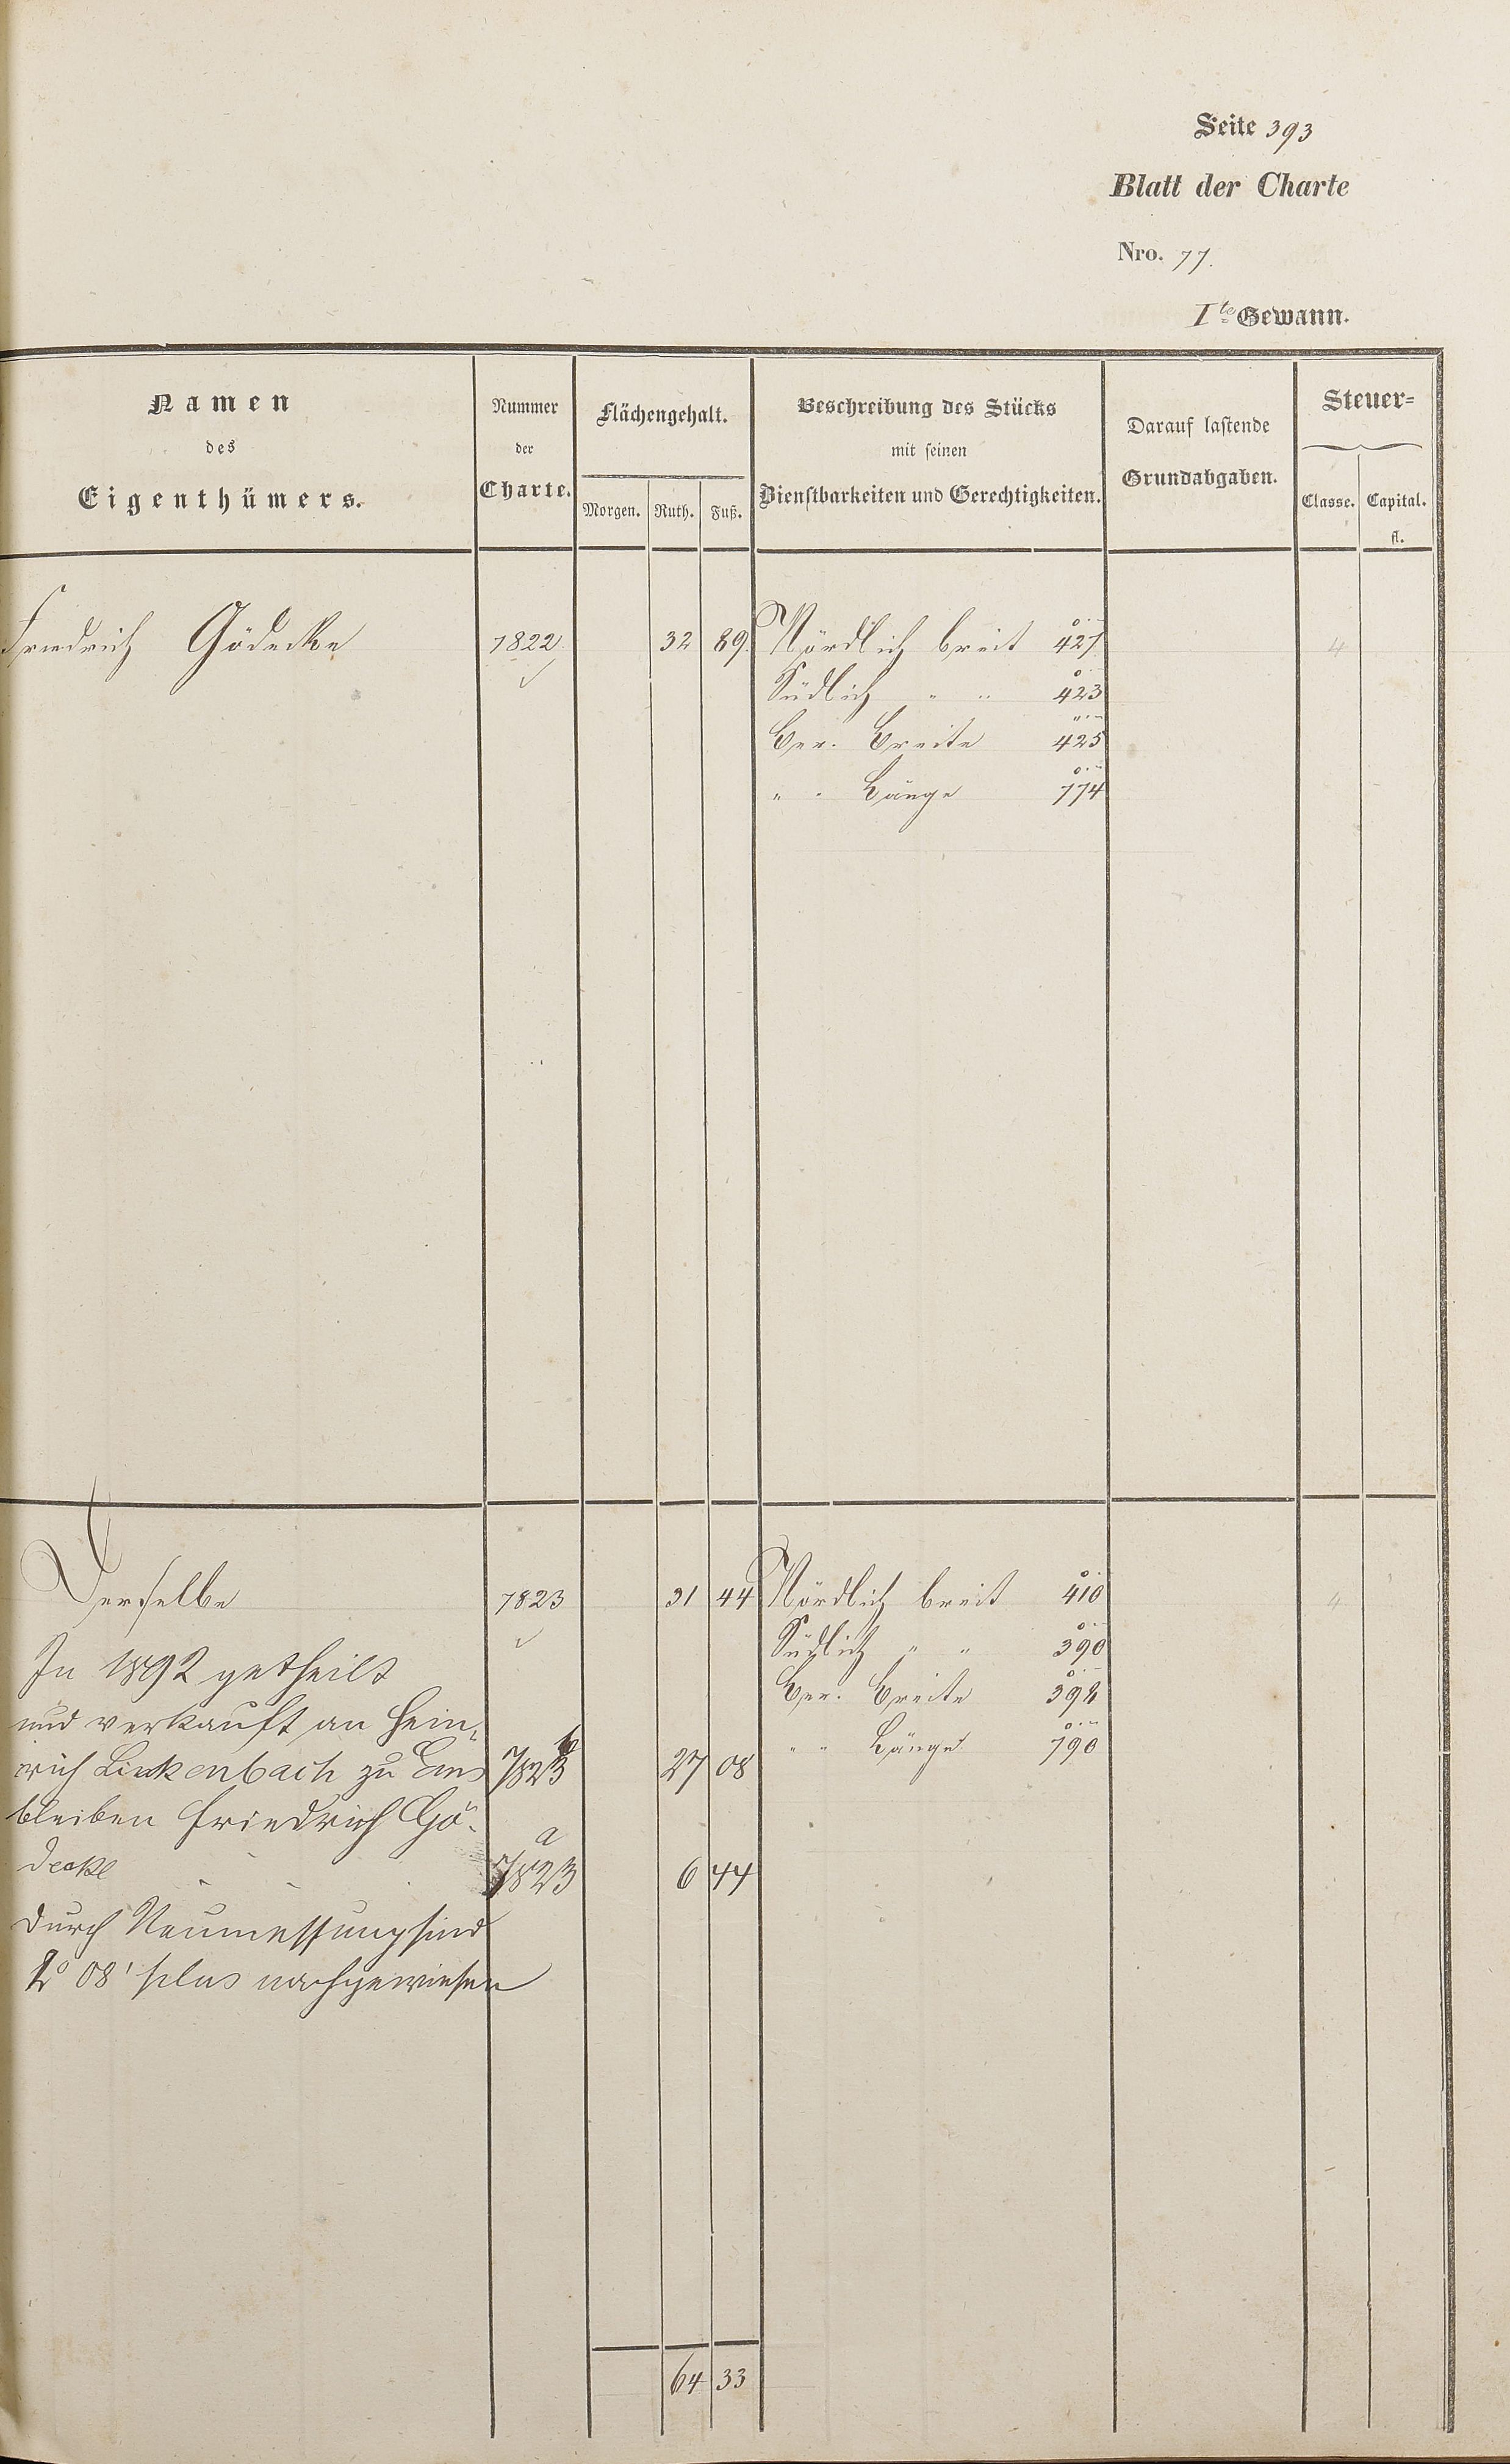 Seite 393
Blatt der Charte
Nro. 77.
I te Gewann.
Namen
des
Eigenthümers.
Nummer
der
Charte.
Flächengehalt.
Morgen. Ruth. Fuß.
Beschreibung des Stücks
mit seinen
Dienstbarkeiten und Gerechtigkeiten.
Darauf lastende
Grundabgaben.
Steuer=
Classe. Capital.
fl.
Friedrich Gödecke 7822. 32 89. Nördlich breit 427 4
Südlich " " 423
Ber. Breite 425
" " Länge 774
Derselbe 7823 31 44 Nördlich breit 410 4
Südlich " " 390
In 1892 getheilt
Ber. Breite
und verkauft an Hein-
" " Länge 790
rich Linkenbach zu Ems 7823 b 27 08
bleiben Friedrich Gö-
decke 7823 a 6 44
durch Neumessung sind
2° 08' plus nachgewiesen
64 33